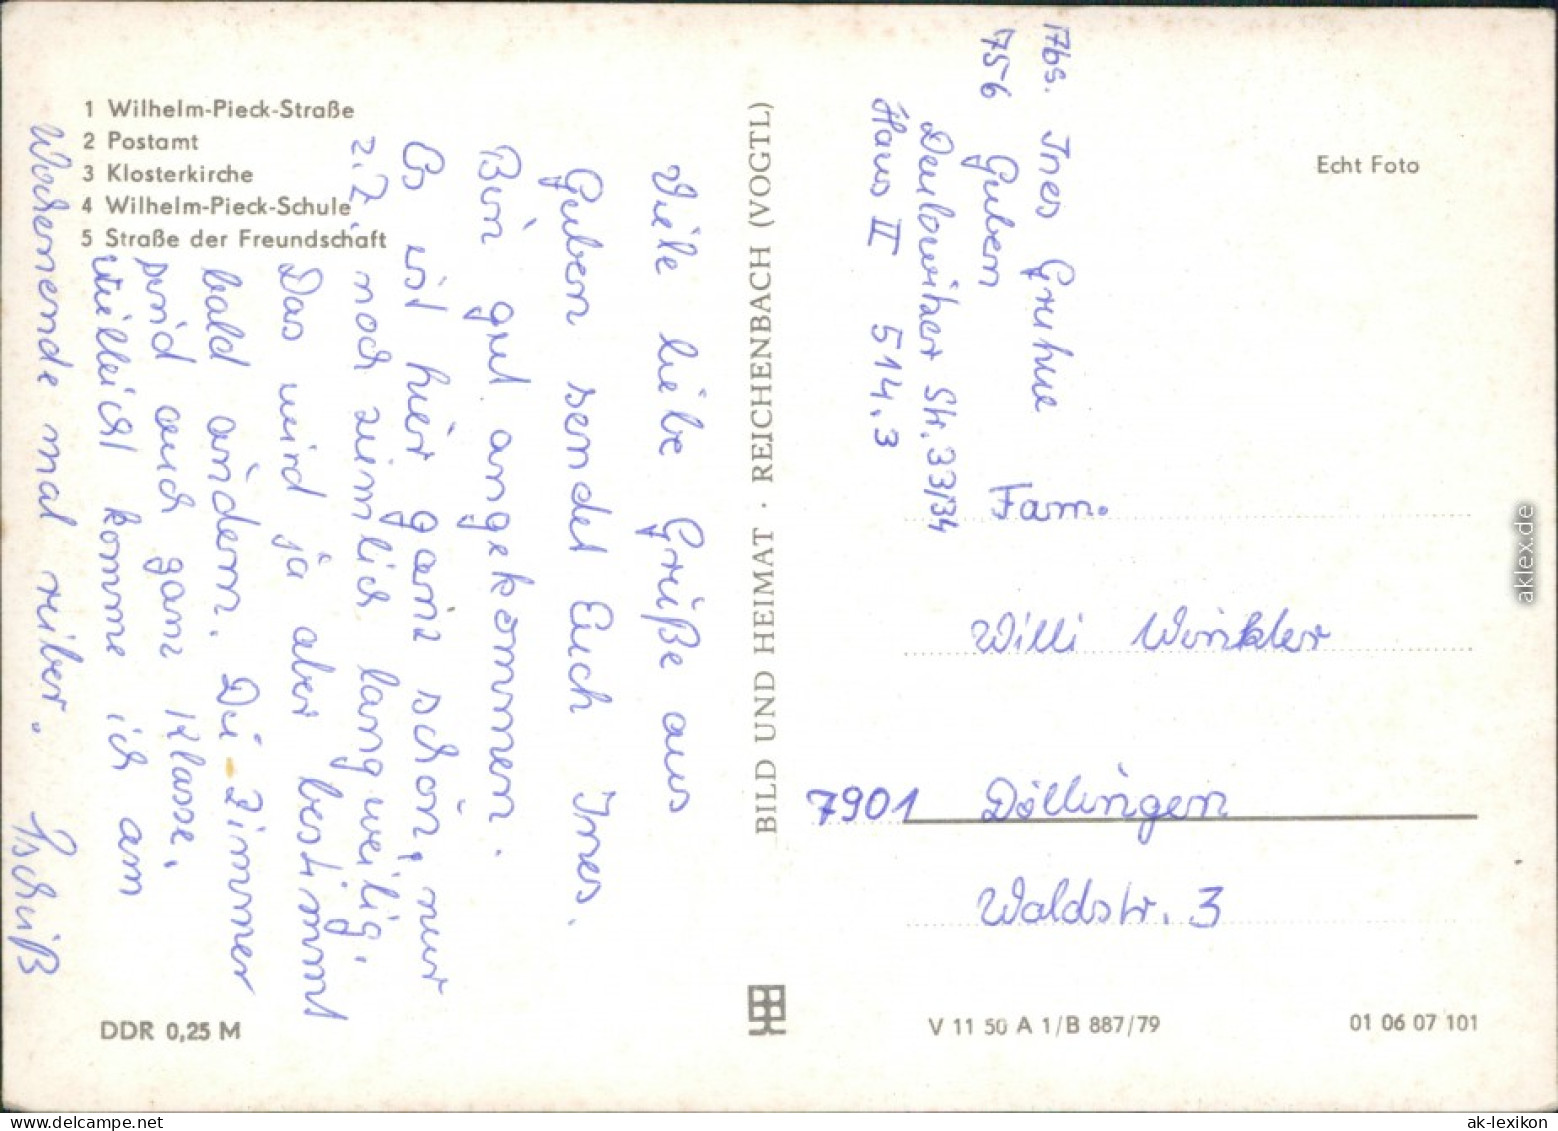 1 Wilhelm-Pieck-Straße
2 Postamt
3 Klosterkirche
4 Wilhelm-Pieck-Schule
5 Straße der Freundschaft
Viele liebe Grüße aus
Guben sendet Euch Ines.
Bin gut angekommen.
Es ist hier ganz schön, nur
z.Z. noch ziemlich langweilig.
Das wird ja aber bestimmt
bald ändern. Die Zimmer
sind auch ganz Klasse.
Vielleicht komme ich am
Wochenende mal rüber. Tschüß
DDR 0,25 M
BILD UND HEIMAT · REICHENBACH (VOGTL)
Abs. Ines Gruhne
756 Guben
Deulowitzer Str. 33/34
Haus II 514.3
Echt Foto
Fam.
Willi Winkler
7901 Döllingen
Waldstr. 3
V 11 50 A 1/B 887/79
01 06 07 101
aklex.de
ak-lexikon